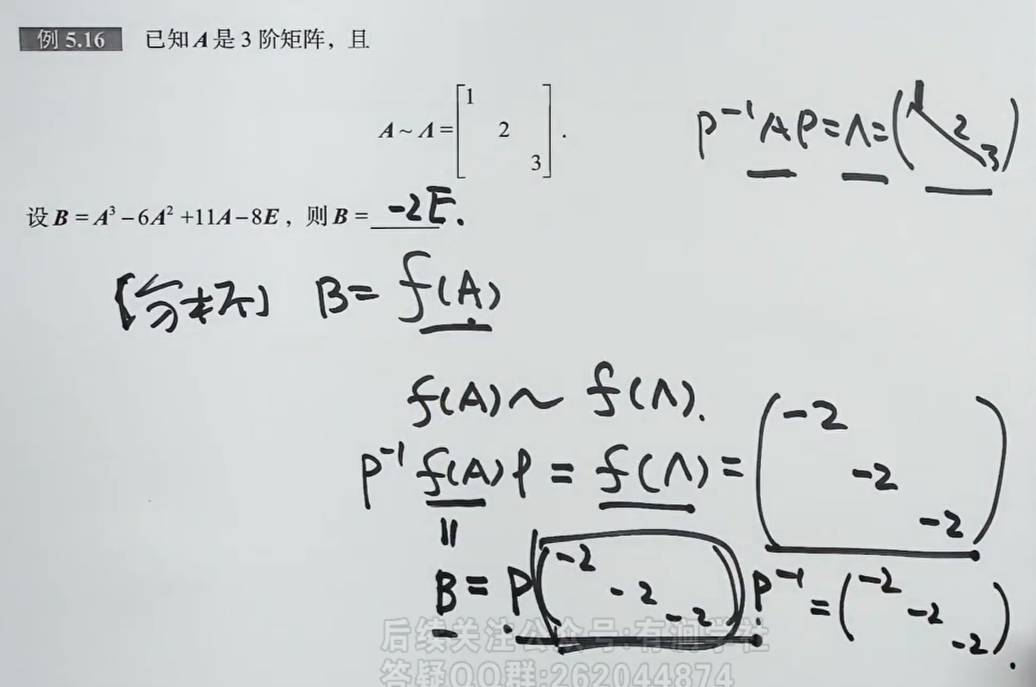 例 5.16 已知 A 是 3 阶矩阵，且
A ~ Λ = [1 2 3].
P⁻¹AP = Λ = (1 2 3)
设 B = A³ - 6A² + 11A - 8E，则 B = -2E.
【分析】 B = f(A)
f(A) ~ f(Λ).
P⁻¹ f(A) P = f(Λ) = (-2 -2 -2)
||
B = P (-2 -2 -2) P⁻¹ = (-2 -2 -2).
后续关注公众号:有润学社
答疑QQ群:262044874